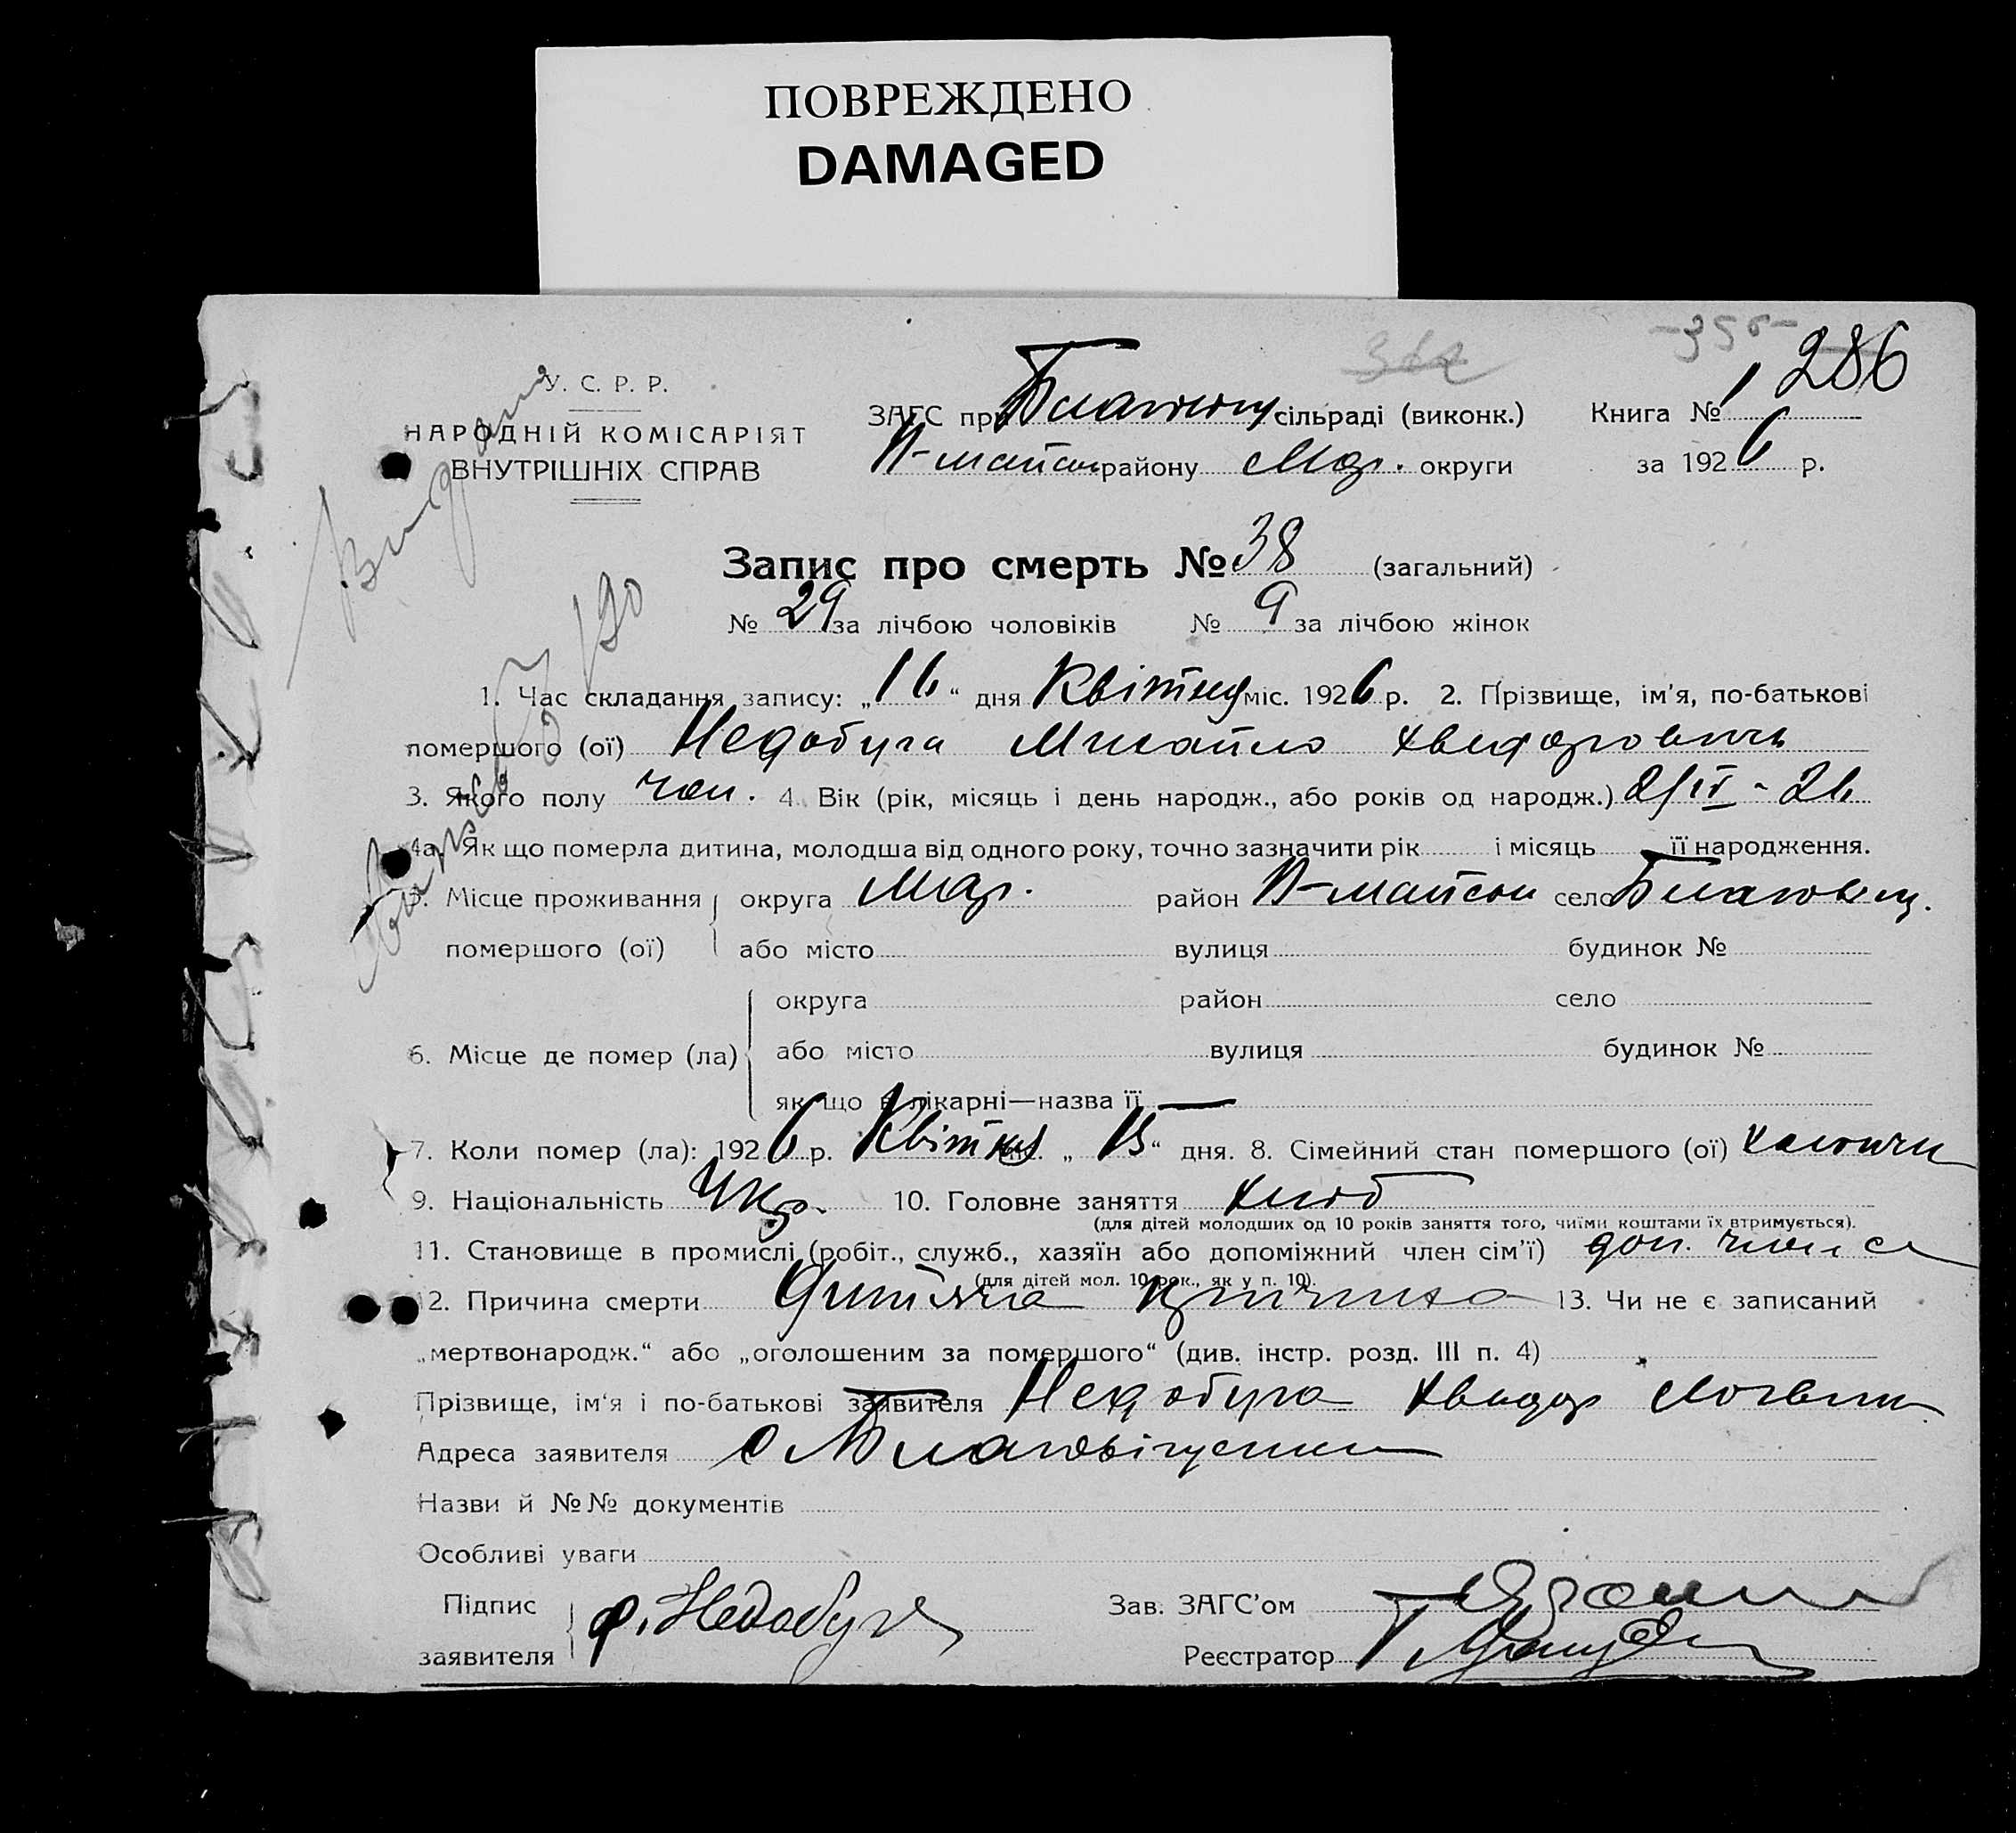 ПОВРЕЖДЕНО
DAMAGED
286
У. С. Р. Р.
НАРОДНІЙ КОМІСАРІЯТ
ВНУТРІШНІХ СПРАВ
ЗАГС при сільраді (виконк.) Книга № 1
району Мар. округи за 1926 р.
Запис про смерть № 38 (загальний)
№ 29 за лічбою чоловіків № 9 за лічбою жінок
1. Час складання запису: „16“ дня Квітня міс. 1926 р. 2. Прізвище, ім'я, по-батькові
помершого (ої) Недобуга Михайло Хведорович
3. Якого полу чол. 4. Вік (рік, місяць і день народж., або років од народж.) 2/IV - 26
4а. Як що померла дитина, молодша від одного року, точно зазначити рік і місяць її народження.
5. Місце проживання округа Мар. район село Благовіщ.
помершого (ої) або місто вулиця будинок №
округа район село
6. Місце де помер (ла) або місто вулиця будинок №
як що в лікарні—назва її —
7. Коли помер (ла): 1926 р. Квітня міс. „15“ дня. 8. Сімейний стан помершого (ої)
9. Національність Укр. 10. Головне заняття хліб
(для дітей молодших од 10 років заняття того, чиїми коштами їх втримується).
11. Становище в промислі (робіт., служб., хазяїн або допоміжний член сім'ї) доп. член с
(для дітей мол. 10 рок., як у п. 10).
12. Причина смерти Дитяча 13. Чи не є записаний
„мертвонародж.“ або „оголошеним за помершого“ (див. інстр. розд. III п. 4)
Прізвище, ім'я і по-батькові заявителя Недобуга Хведор Логвин
Адреса заявителя с Благовіщення
Назви й №№ документів
Особливі уваги
Підпис Зав. ЗАГС'ом
заявителя Ф. Недобуга Реєстратор